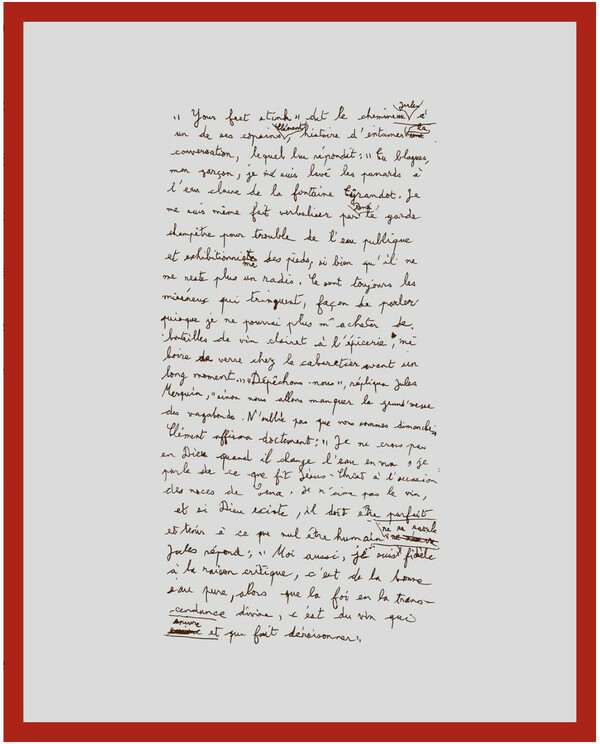 "Your feet stink" dit le chemineau Jules à
un de ses copains, Clément, histoire d'entamer la
conversation, lequel lui répondit : "Tu blagues,
mon garçon, je me suis lavé les panards à
l'eau claire de la fontaine Grandot. Je
me suis même fait verbaliser par René le garde
champêtre pour trouble de l'eau publique
et exhibitionnisme des pieds, si bien qu'il ne
me reste plus un radis. Ce sont toujours les
miséreux qui trinquent, façon de parler
puisque je ne pourrai plus m'acheter de
bouteilles de vin clairet à l'épicerie, ni
boire de verre chez le cabaretier avant un
long moment." "Dépêchons-nous", répliqua Jules
Merquin, "sinon nous allons manquer la grand'messe
des vagabonds. N'oublie pas que nous sommes dimanche."
Clément affirma doctement : "Je ne crois pas
en Dieu quand il change l'eau en vin, je
parle de ce que fit Jésus-Christ à l'occasion
des noces de Cana. Je n'aime pas le vin,
et si Dieu existe, il doit être parfait
et tenir à ce que nul être humain ne se saoule
Jules répond : "Moi aussi, je suis fidèle
à la raison critique, c'est de la bonne
eau pure, alors que la foi en la trans-
cendance divine, c'est du vin qui
enivre et qui fait déraisonner"